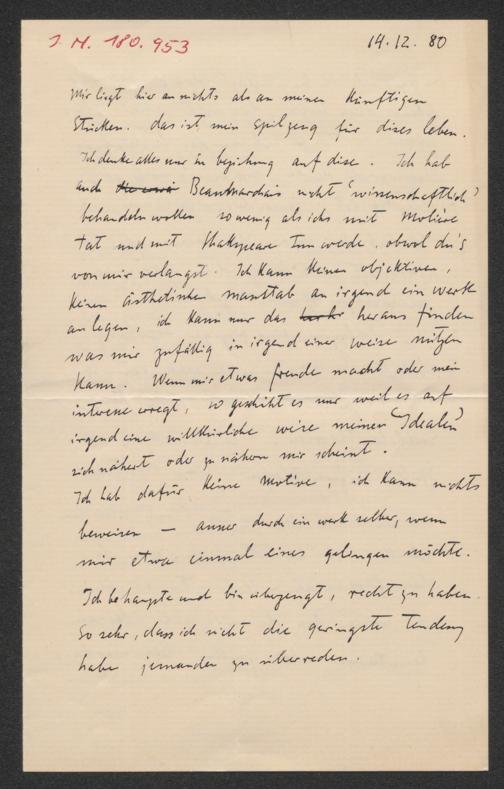 J. N. 180.953
14.12.80
Mir liegt hier an nichts als an meinen künftigen
Stücken. das ist mein spilzeug für dises leben.
Ich denke alles nur in beziehung auf dise. Ich hab
auch Beaumarchais nicht "wissenschaftlich"
behandeln wollen sowenig als ichs mit Molière
tat und mit Shakspeare tun werde. obwol du's
von mir verlangst. Ich kann keinen objektiven,
keinen ästhetischen masstab an irgend ein werk
anlegen, ich kann nur das heraus finden
was mir zufällig in irgend einer weise nützen
kann. Wenn mir etwas freude macht oder mein
interesse erregt, so geschiht es nur weil es auf
irgend eine willkürliche weise meinen "Idealen"
sich nähert oder zu nähern mir scheint.
Ich hab dafür keine motive, ich kann nichts
beweisen — ausser durch ein werk selber, wenn
mir etwa einmal eines gelingen möchte.
Ich behaupte und bin überzeugt, recht zu haben.
So sehr, dass ich nicht die geringste tendenz
habe jemanden zu überreden.